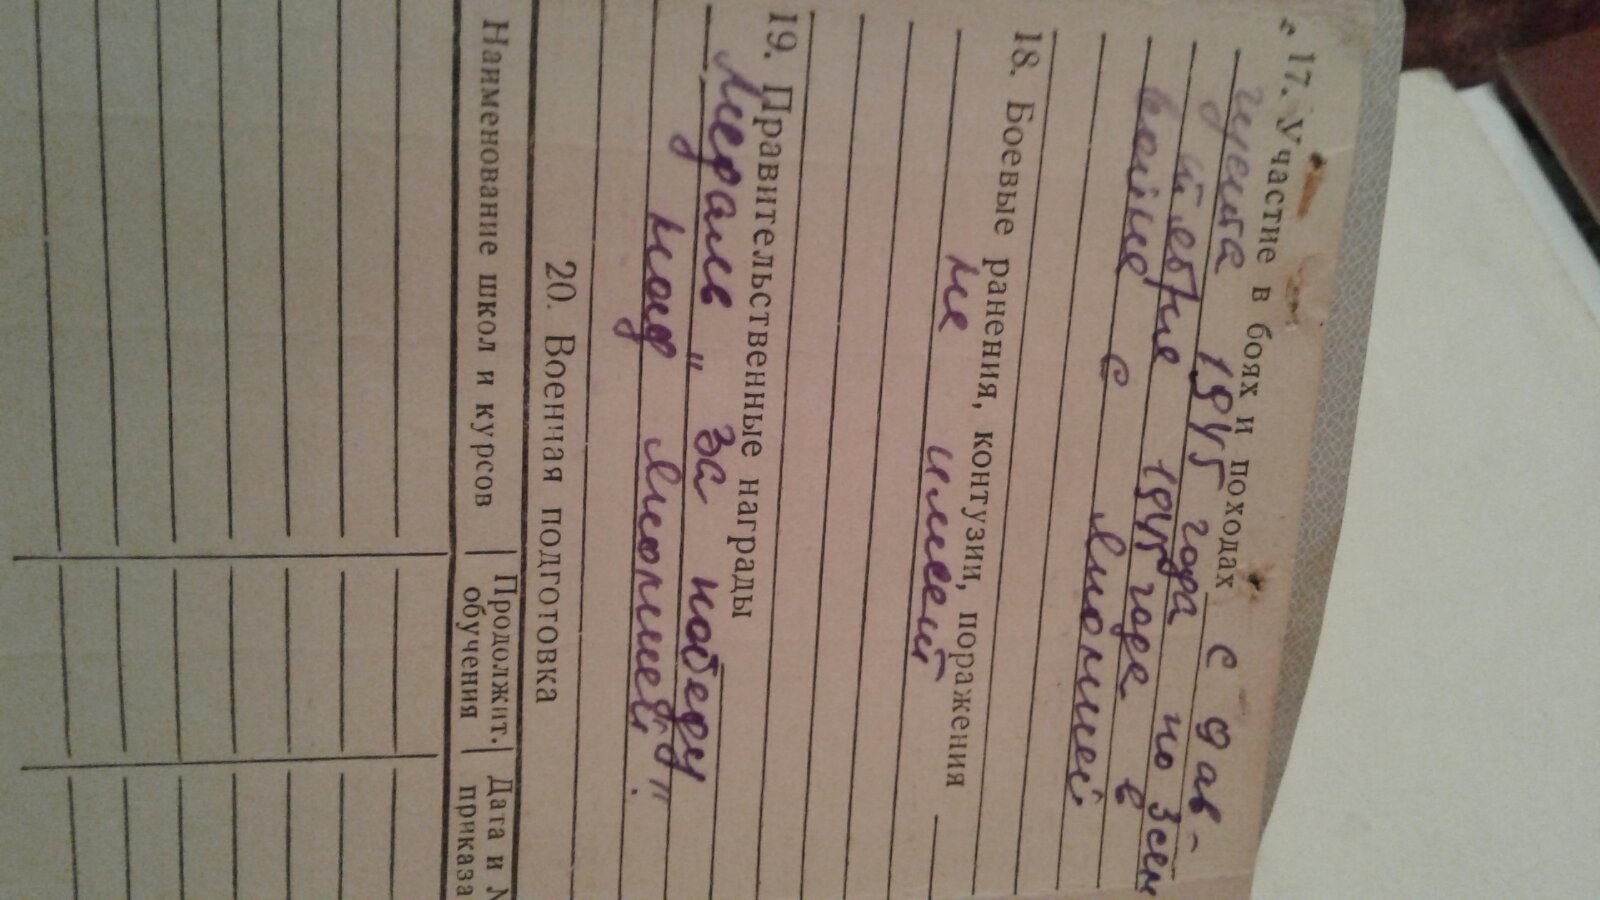 17. Участие в боях и походах с 9 ав-
густа 1945 года по 3 сен
тября 1945 года в
войне с Японией
18. Боевые ранения, контузии, поражения
не имеет
19. Правительственные награды
Медаль „За победу
над Японией".
20. Военная подготовка
Наименование школ и курсов
Продолжит. обучения
Дата и №
приказа